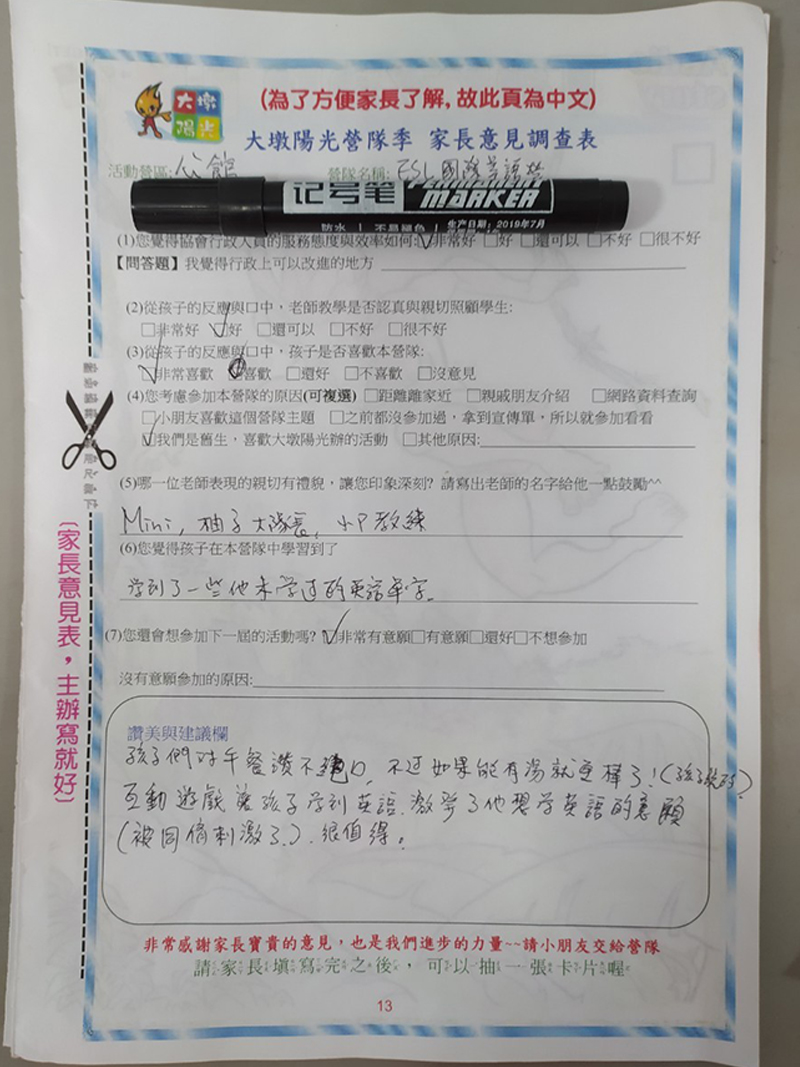 大墩
陽光
(為了方便家長了解,故此頁為中文)
大墩陽光營隊季 家長意見調查表
活動營區:公館 營隊名稱:ESL國際英語營
记号笔 PERMANENT MARKER
防水 | 不易褪色 | 生产日期:2019年7月
(1)您覺得協會行政人員的服務態度與效率如何:☑非常好 □好 □還可以 □不好 □很不好
【問答題】我覺得行政上可以改進的地方
(2)從孩子的反應與口中,老師教學是否認真與親切照顧學生:
□非常好 ☑好 □還可以 □不好 □很不好
(3)從孩子的反應與口中,孩子是否喜歡本營隊:
☑非常喜歡 喜歡 □還好 □不喜歡 □沒意見
(4)您考慮參加本營隊的原因(可複選) □距離離家近 □親戚朋友介紹 □網路資料查詢
□小朋友喜歡這個營隊主題 □之前都沒參加過,拿到宣傳單,所以就參加看看
☑我們是舊生,喜歡大墩陽光辦的活動 □其他原因:
(5)哪一位老師表現的親切有禮貌,讓您印象深刻? 請寫出老師的名字給他一點鼓勵^^
Mini, 柚子大隊長, 小P教練
(6)您覺得孩子在本營隊中學習到了
學到了一些他未學過的英語單字.
(7)您還會想參加下一屆的活動嗎? ☑非常有意願□有意願□還好□不想參加
沒有意願參加的原因:
讚美與建議欄
孩子們對午餐讚不絕口, 不過如果能有湯就更棒了!(孩子說的)
互動遊戲讓孩子學到英語.激發了他想學英語的意願
(被同儕刺激了.).很值得。
非常感謝家長寶貴的意見,也是我們進步的力量~~請小朋友交給營隊
請家長填寫完之後,可以抽一張卡片喔
13
〔家長意見表,主辦寫就好〕